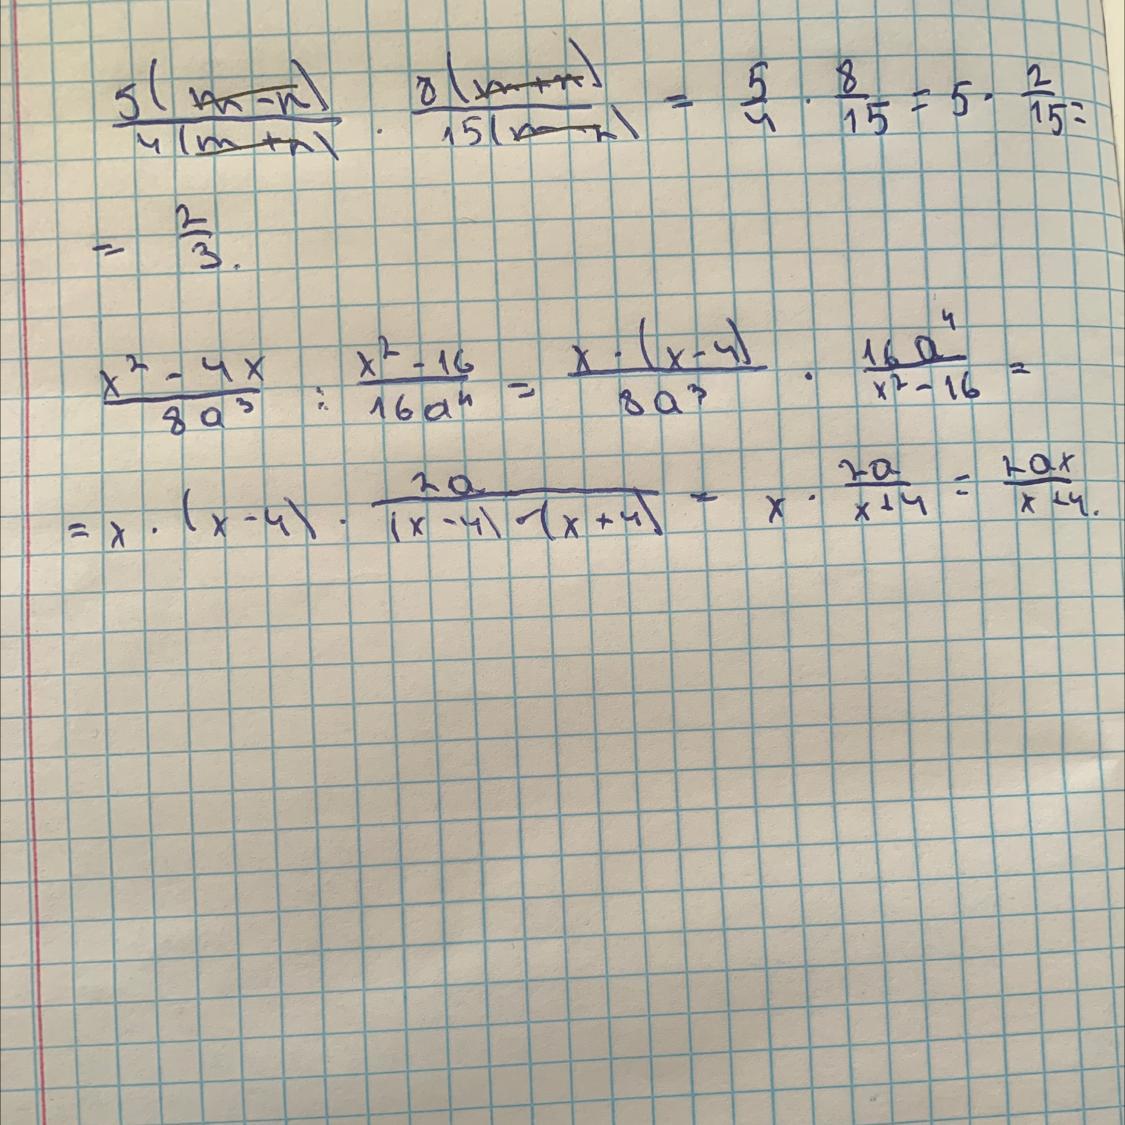 5(m-n)/4(m+n) · 8(m+n)/15(m-n) = 5/4 · 8/15 = 5 · 2/15 =
= 2/3.
x² - 4x/8a³ : x² - 16/16a⁴ = x · (x-4)/8a³ · 16a⁴/x² - 16 =
= x · (x-4) · 2a/(x-4) · (x+4) = x · 2a/x+4 = 2ax/x+4.